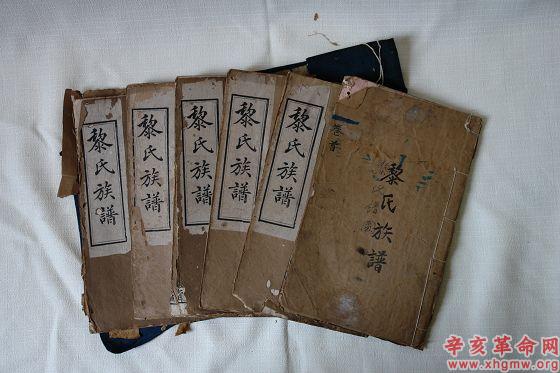 黎氏族譜
黎氏族譜
黎氏族譜
黎氏族譜
黎氏族譜
卷首
黎氏族譜
辛亥革命网
www.xhgmw.org